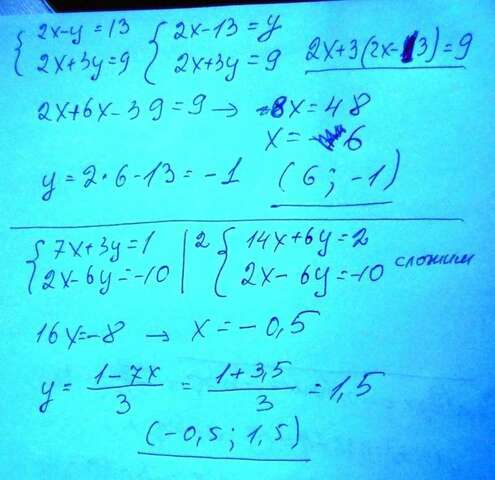 { 2x-y=13 { 2x-13=y
{ 2x+3y=9 { 2x+3y=9 2x+3(2x-13)=9
2x+6x-39=9 → 8x=48
x=6
y=2·6-13=-1 (6; -1)
{ 7x+3y=1 | 2 { 14x+6y=2
{ 2x-6y=-10 | { 2x-6y=-10 сложим
16x=-8 → x=-0,5
y= (1-7x)/3 = (1+3,5)/3 =1,5
(-0,5; 1,5)